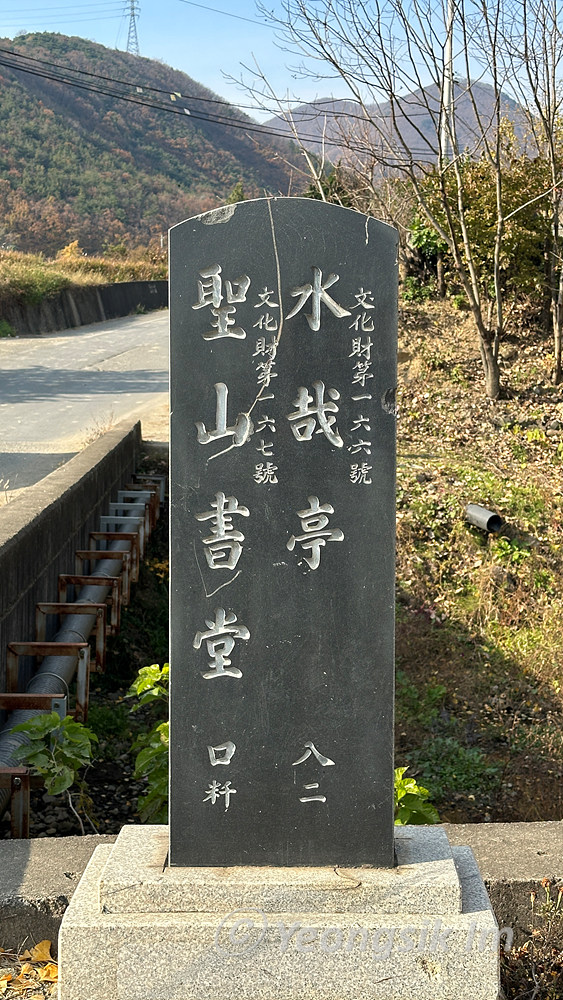 文化財第一六六號
水哉亭
文化財第一六七號
聖山書堂
入口
二粁
© Yeongsik Im